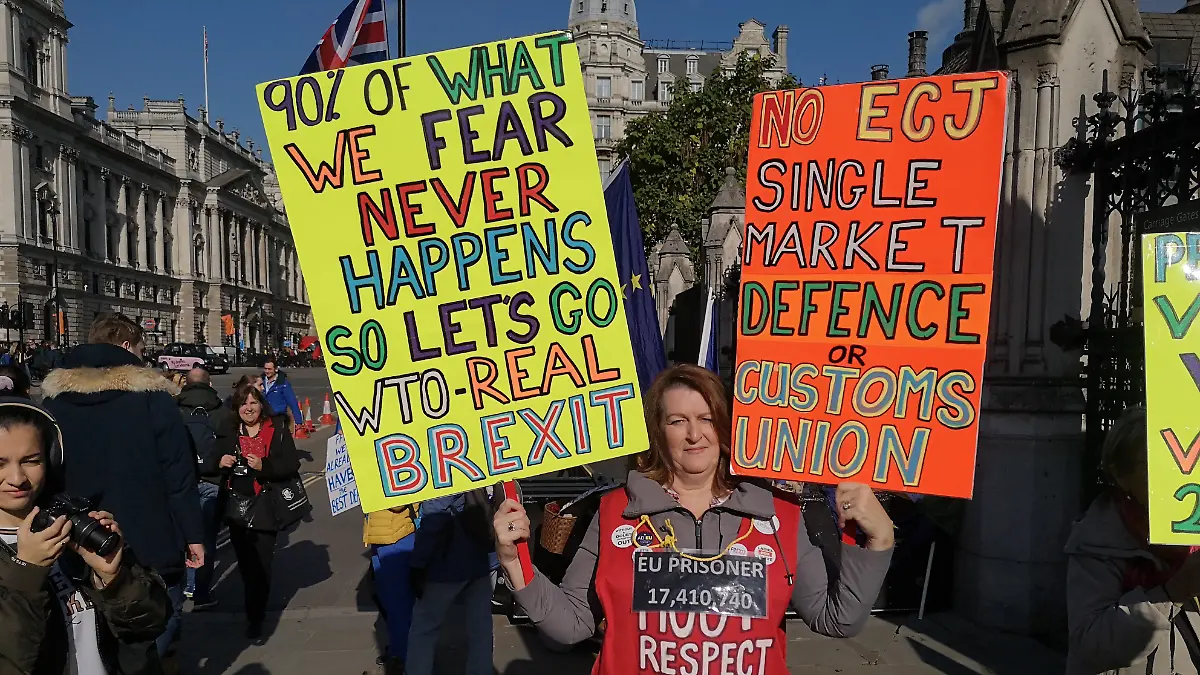 90% OF WHAT
WE FEAR
NEVER
HAPPENS
SO LET'S GO
WTO-REAL
BREXIT
NO ECJ
SINGLE
MARKET
DEFENCE
OR
CUSTOMS
UNION
EU PRISONER
17,410,740
RESPECT
WE
ALREADY
HAVE
BEST
Carriage Gates